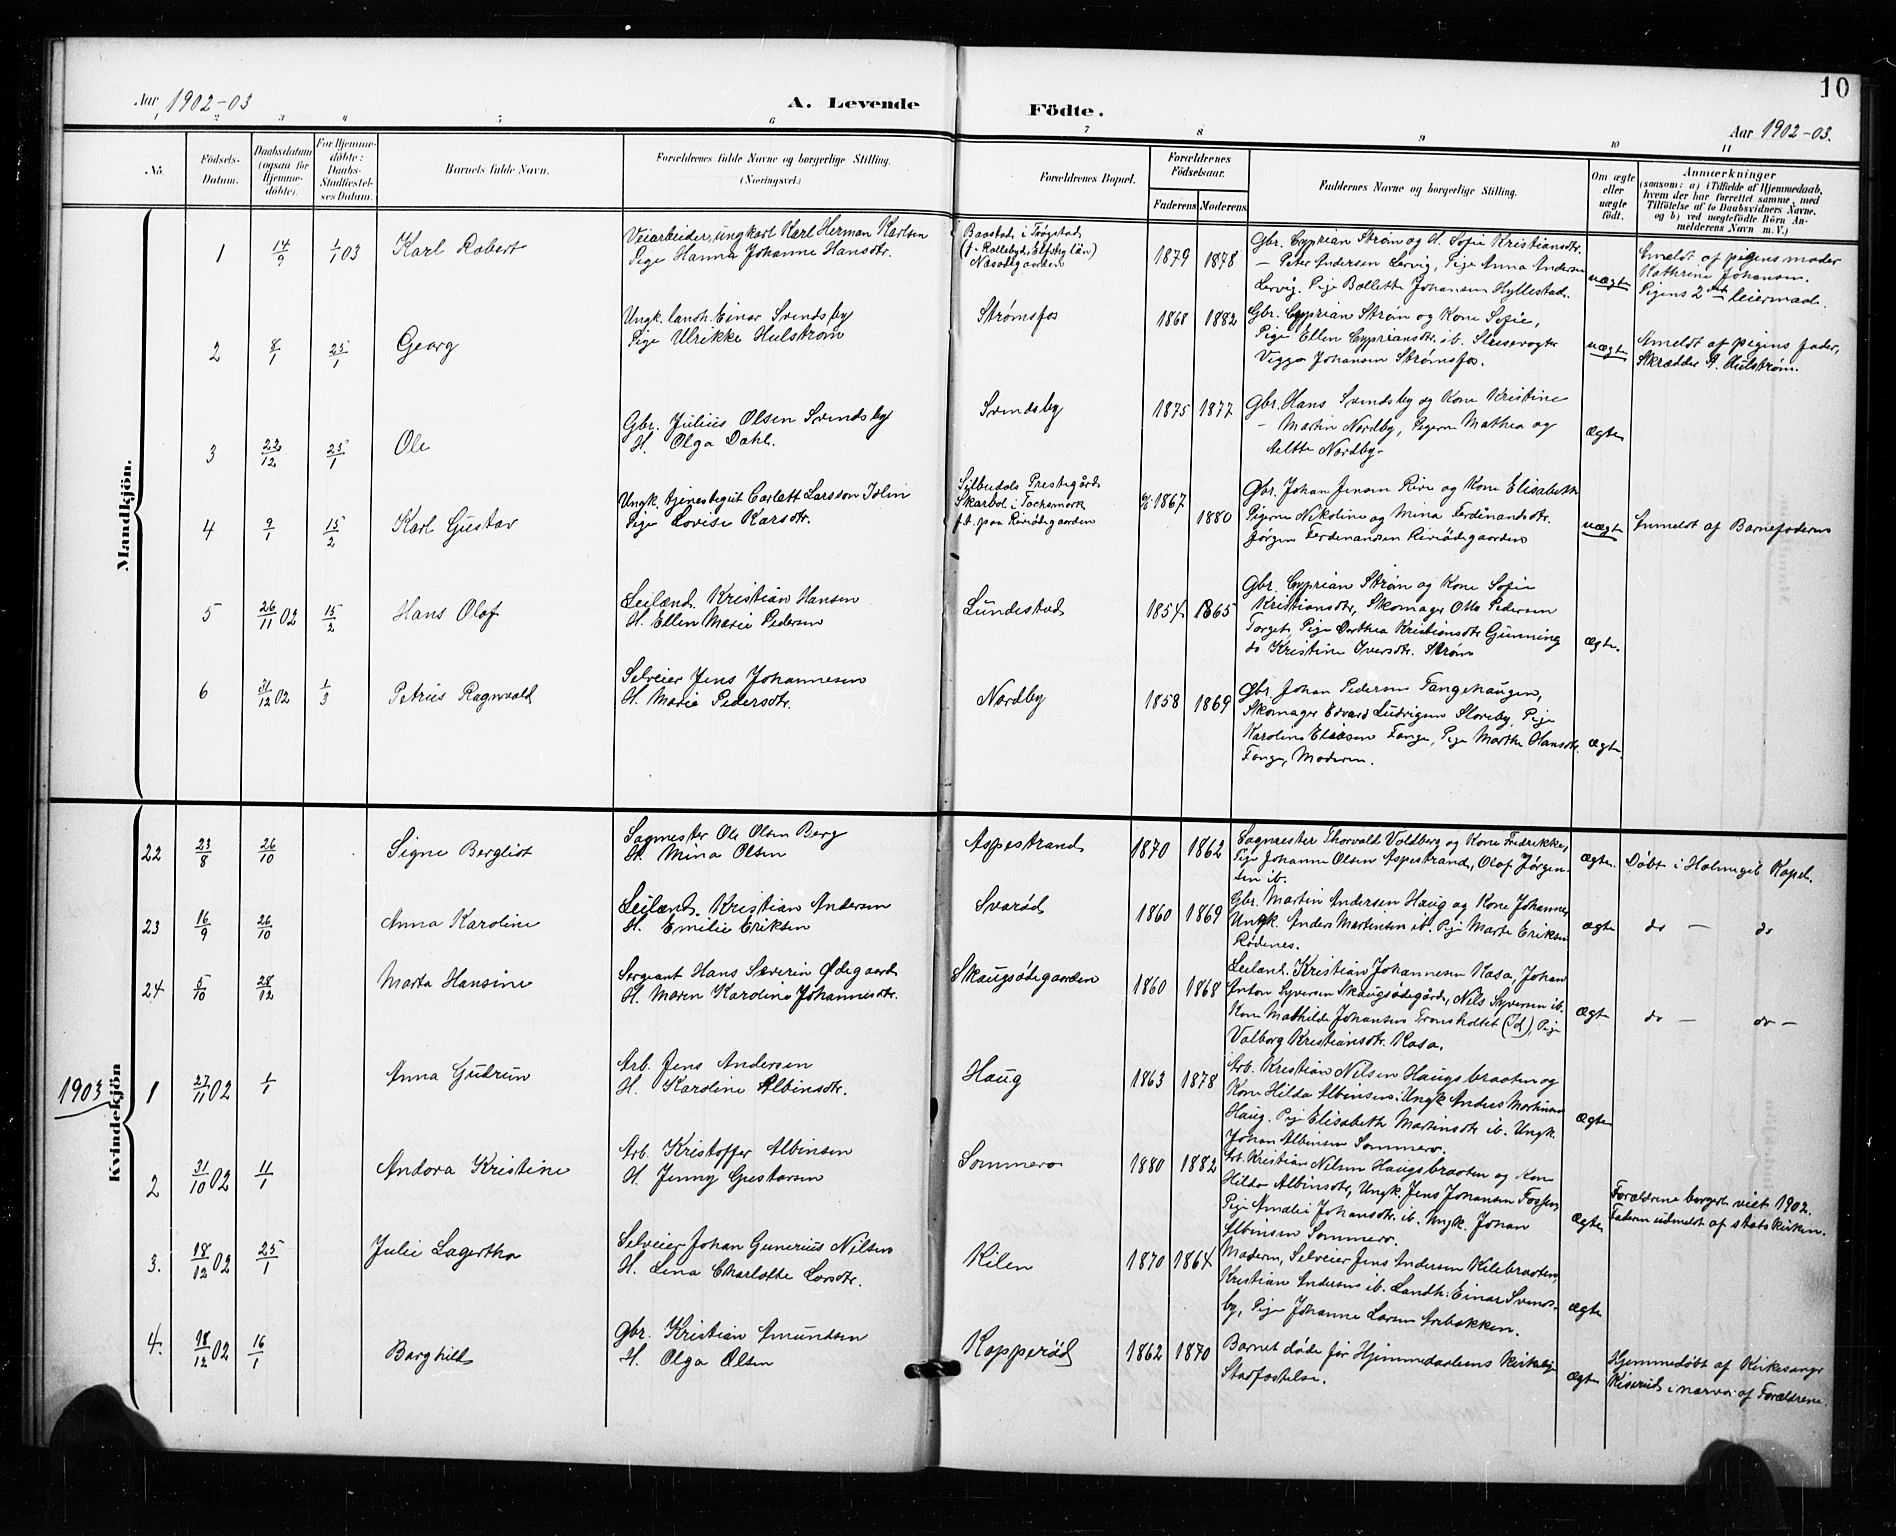 Aar 1902-03
A. Levende
Födte.
10
Aar 1902-03.
1 2 3 4 5 6 7 8 9 10 11
No.
Födsels-
Datum.
Daabsdatum
(ogsaa for
Hjemme-
döbte).
For Hjemme-
döbte:
Daabs-
Stadfæstel-
ses Datum.
Barnets fulde Navn.
Forældrenes fulde Navne og borgerlige Stilling.
(Næringsvei.)
Forældrenes Bopæl.
Forældrenes
Födselsaar.
Faderens
Moderens
Faddernes Navne og borgerlige Stilling.
Om ægte
eller
uægte
födt.
Anmærkninger
(saasom: a) i Tilfælde af Hjemmedaab,
hvem der har forrettet samme, med
Tilföielse af to Daabsvidners Navne,
og b) ved uægtefödte Börn An-
melderens Navn m. V.)
Mandkjön.
1
14/9
1/1 03
Karl Robert
Veiarbeider, ungkarl Karl Herman Karlsen
Pige Hanna Johanne Hansdtr.
Baastad i Trøgstad
Næsødegaarden
1879
1878
Gbr. Cyprian Strøm og H. Sofie Kristiansdtr.
— Peter Andersen Lervig, Pige Anna Andersen
Lervig. Pige Bollette Johansen Hyllestad.
uægte
Anmeldt af pigens moder
Kathrine Johansen.
Pigens 2det leiermaal.
2
8/1
25/1
Georg
Ungk. landh. Einar Svendsby
Pige Ulrikke Hulstrøm
Strømsfos
1868
1882
Gbr. Cyprian Strøm og Kone Sofie,
Pige Ellen Cypriansdtr. ib. Slusevogter
Viggo Johansen Strømsfos.
uægte
Anmeldt af pigens fader,
Skrædder A. Hulstrøm.
3
22/12
25/1
Ole
Gbr. Julius Olsen Svendsby
H. Olga Dahl.
Svendsby
1875
1877
Gbr. Hans Svendsby og Kone Kristine
— Martin Nordby, Pigerne Mathea og
Nordby-
ægte
4
9/1
15/2
Karl Gustav
Ungk. tjenestegut Carlett Larsson Islin
Pige Lovise Larsdtr.
Silbudals Prestegård
Skarbol i Tockmark
f.t. paa Riviødegaarden
1867
1880
Gbr. Johan Jensen Rive og Kone Elisabeth
Pigerne Nikoline og Mina Ferdinandsdtr.
Jørgen Ferdinandsen Riviødegaarden
uægte
Anmeldt af Barnefaderen
5
26/11 02
15/2
Hans Olaf
Leilænd. Kristian Hansen
H. Ellen Marie Pedersen
Lundestad
1854
1865
Gbr. Cyprian Strøm og Kone Sofie
Kristiansdtr, Skomager Otto Pedersen
Torget, Pige Dorthea Kristiansdtr. Gunning
do Kristine Iversdtr. Strøm
ægte.
6
31/12 02
1/3
Petrus Ragnvald
Selveier Jens Johannesen
H. Marie Pedersdtr.
Nordby
1858
1869
Gbr. Johan Pedersen Tangehaugen,
Skomager Edvard Ludvigsen Storeby, Pige
Karoline Eliasen Tange, Pige Marthe Hansdtr.
Tange, Moderen.
ægte
Kvindekjön
22
23/8
26/10
Signe Bergliot
Sagmester Ole Olsen Berg
H. Mina Olsen
Aspestrand
1870
1862
Sagmester Thorvald Voldberg og Kone Fredrikke,
Pige Johanne Olsen Aspestrand, Olaf Jørgen-
sen ib.
ægte.
Døbt i Holmegil Kapel.
23
16/9
26/10
Anna Karoline
Leilænd. Kristian Andersen
H. Emilie Eriksen
Svarød
1860
1869
Gbr. Martin Andersen Haug og Kone Johanne,
Ungk. Anders Martinsen ib. Pige Marte Eriksen
Rødenes.
ægte
do — do
24
5/10
28/12
Marta Hansine
Sergeant Hans Severin Ødegaard
H. Maren Karoline Johannesdtr.
Skaugsødegaarden
1860
1868
Leilænd. Kristian Johannesen Kasa, Johan
Anton Syversen Skaugsødegård, Nils Syversen ib.
Kone Mathilde Johansen Tronsholtet (Id), Pige
Valborg Kristiansdtr. Kasa.
ægt
do — do —
1903
1
27/11 02
1/1
Anna Gudrun
Arb. Jens Andersen
H. Karoline Albinsdtr.
Haug
1863
1878
Arb. Kristian Nilsen Haugsbraaten og
Kone Hilda Albinsen. Ungk Anders Martinsen
Haug. Pige Elisabeth Martinsdtr ib. Ungk.
Johan Albinsen Sommero.
ægte
2
31/10 02
11/1
Andora Kristine
Arb. Kristoffer Albinsen
H. Jenny Gustavsen
Sommero
1880
1882
Arb. Kristian Nilsen Haugsbraaten og Kone
Hilda Albinsdtr, Ungk. Jens Johansen Fossen,
Pige Amalie Johansdtr. ib. Ungk. Johan
Albinsen Sommero.
ægte
Forældrene borgerl. viet 1902.
Faderen udmeldt af statskirken.
3.
18/12 02
25/1
Julie Lagertha
Selveier Johan Gunerius Nilsen
H. Lina Charlotte Larsdtr.
Kilen
1870
1864
Moderen, Selveier Jens Andersen Kilebraaten,
Kristian Andersen ib. Landh. Einar Svends-
by, Pige Johanne Larsen Arebækken.
ægte
4.
18/12 02
16/1
Borghild
Gbr. Kristian Amundsen
H. Olga Olsen
Kopperød
1862
1870
Barnet døde før Hjemmedaabens kirkelige
Stadfæstelse.
ægte
Hjemmedøbt af Kirkesanger
Riserud i nærvær af Forældrene.